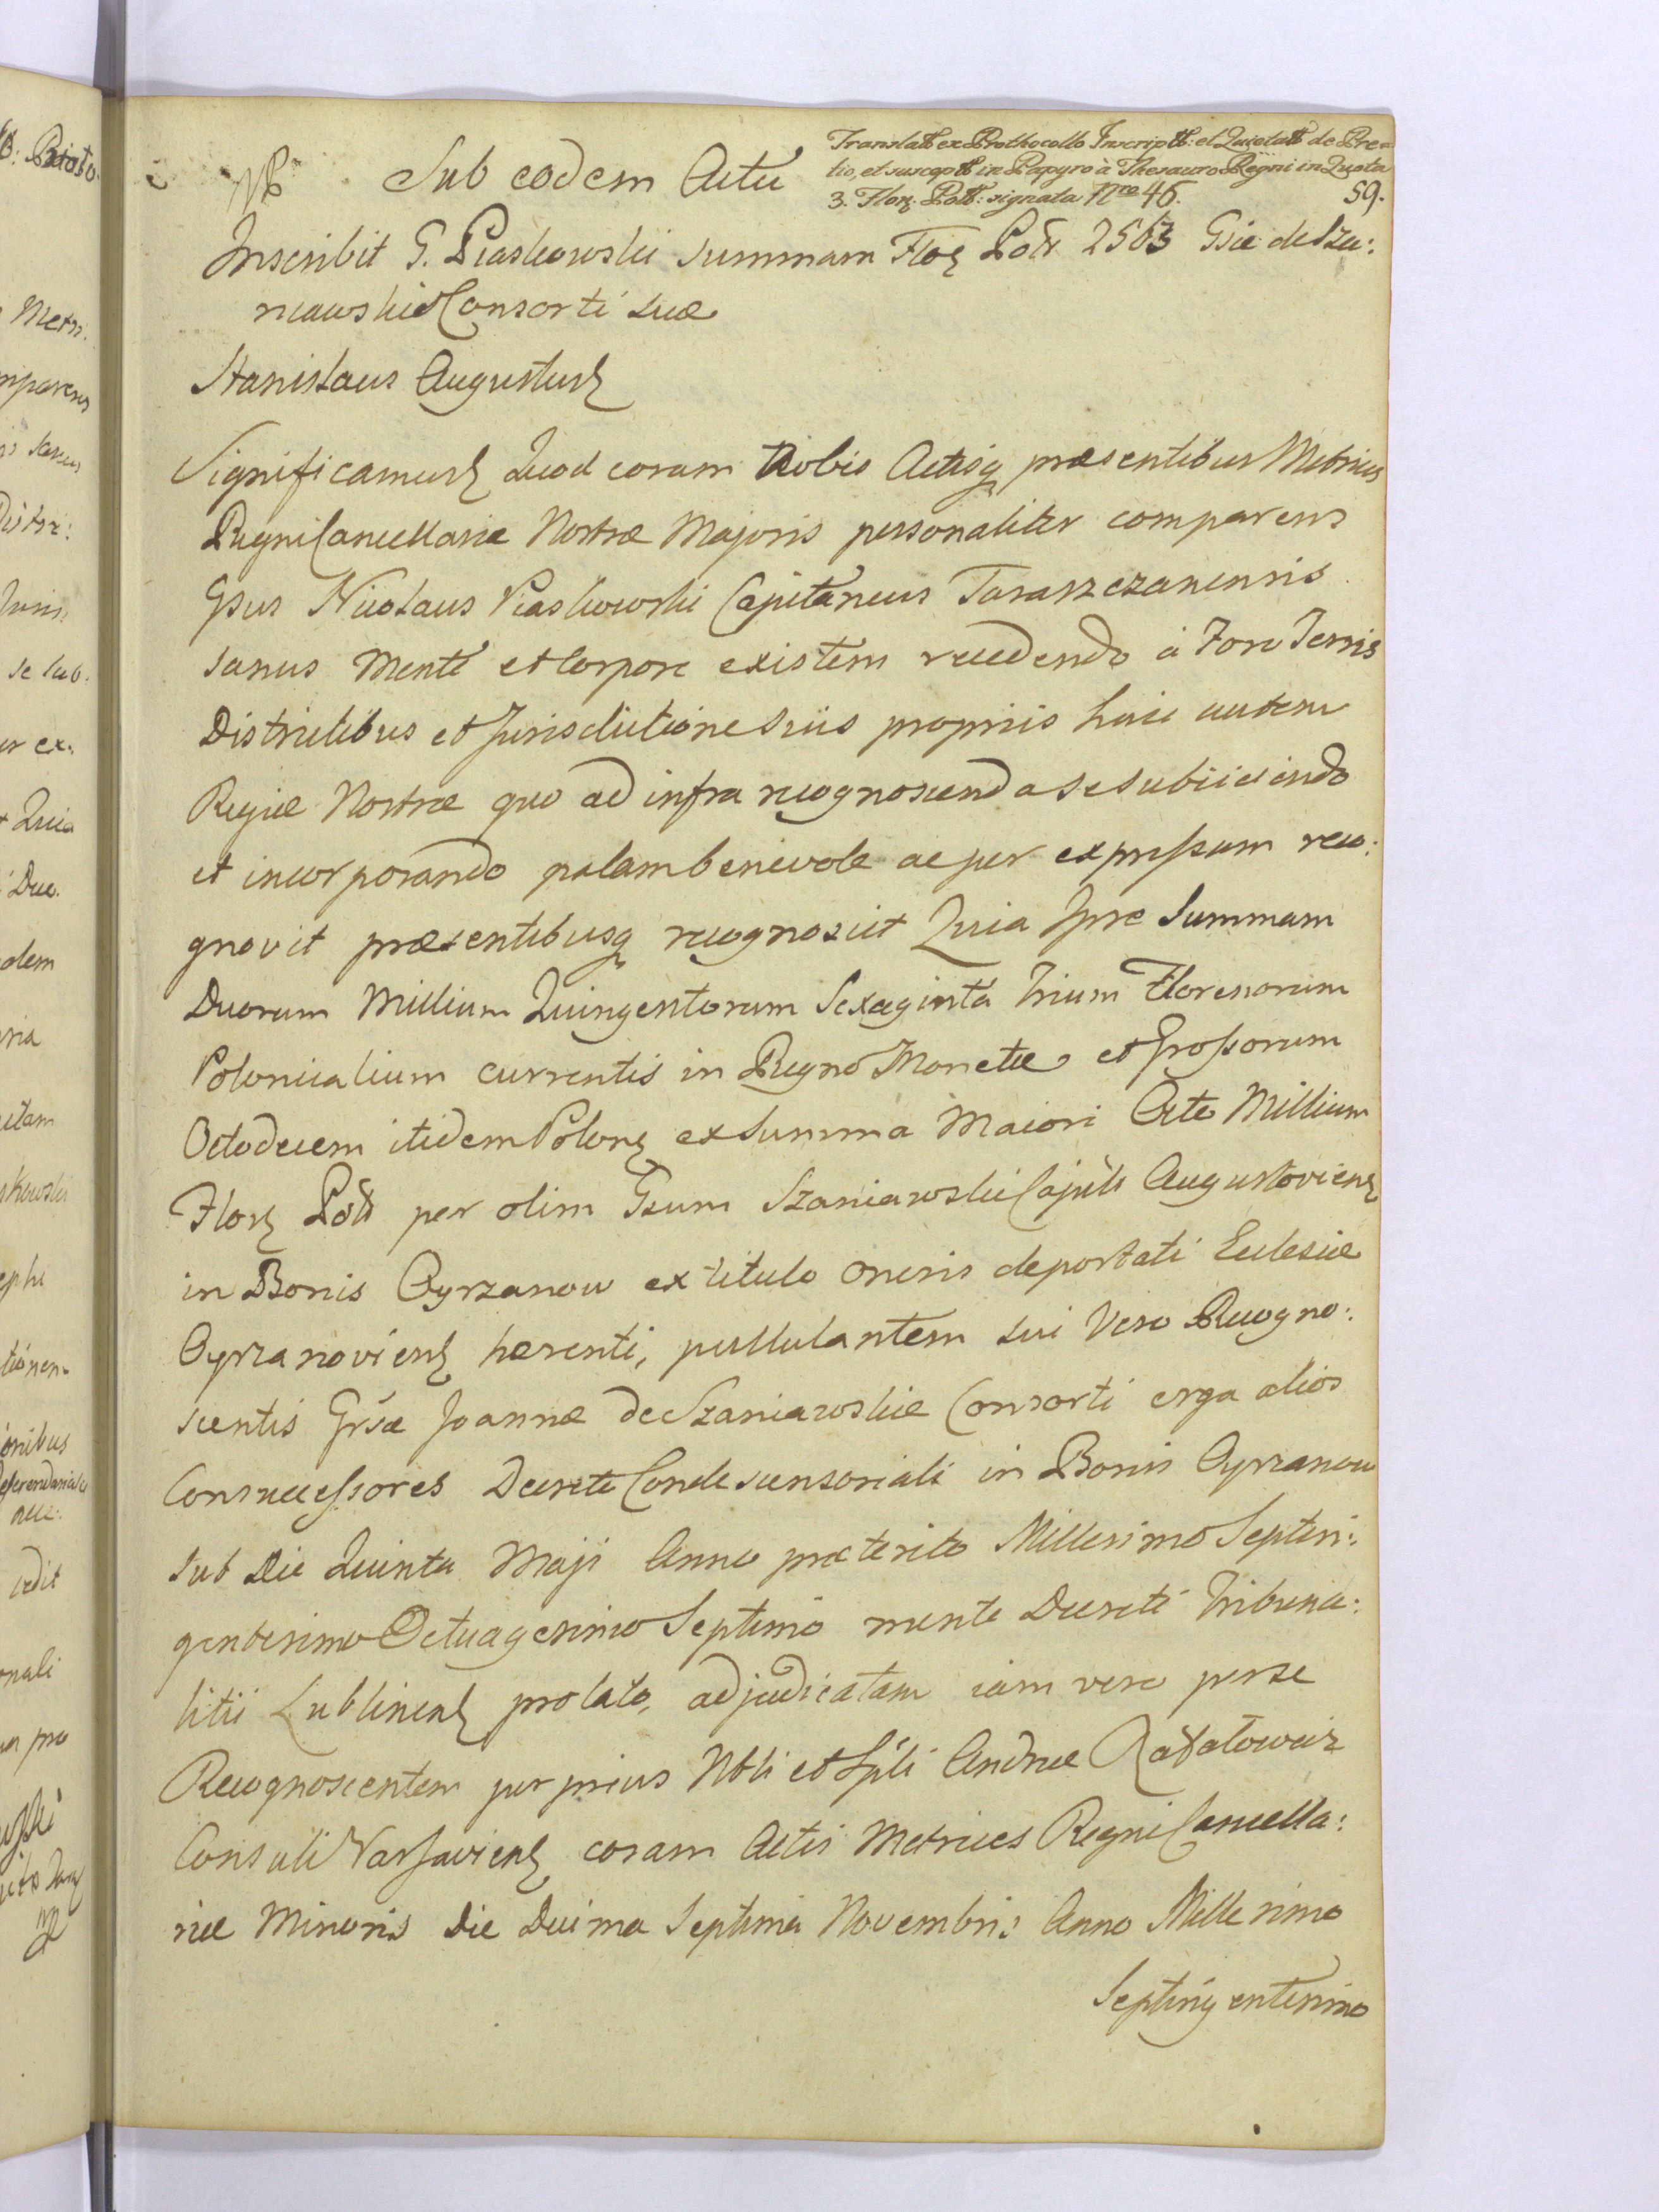 Translatt ex Prothocollo Inscriptt: et Quietatt de Pre=
tio, et susceptt in Papyro à Thesauro Regni in Quota
3. Flor: Poltt: signata Nro 46. 59.
Sub eodem Actu
Inscribit G. Piaskowski summam Flor Poltt 2563 Gsie de Sza:
niawskie Consorti suæ
Stanislaus Augustus
Significamus Quod coram Nobis Actisq præsentibus Metrices
Regni Cancellariæ Nostræ Majoris personaliter comparens
Gsus Nicolaus Piaskowski Capitaneus Taraszczanensis
sanus Mente et Corpore existens recedendo à Foro Terris
Districtibus et Jurisdictione suis propriis huic autem
Regiæ Nostræ quo ad infra recognoscenda se subiiciendo
et incorporando palam benevole ac per expressum reco:
gnovit præsentibusq recognoscit Quia Ipse Summam
Duorum Millium Quingentorum Sexaginta Trium Florenorum
Polonicalium currentis in Regno Monetæ et Grossorum
Octodecem itidem Polon ex summa Maiori Octo Millium
Flor Poltt per olim Gsum Szaniawski Capitt Augustoviens
in Bonis Cyrzanow ex titulo Oneris deportati Ecclesiæ
Cyrzanoviens hærenti, pullulantem sui Vero Recogno:
scentis Grsæ Joannæ de Szaniawskie Consorti erga alios
Consuccessores Decreto Condescensoriali in Bonis Cyrzanow
sub Die Quinta Maji Anno præterito Millesimo Septin:
gentesimo Octuagesimo Septimo mente Decreti Tribuna:
litii Lublinens prolato, adjudicatam iam vero per se
Recognoscentem per prius Nbli et Spli Andreæ Rafałowicz
Consuli Varsaviens coram Actis Metrices Regni Cancella:
riæ Minoris Die Decima Septima Novembris Anno Millesimo
Septingentesimo